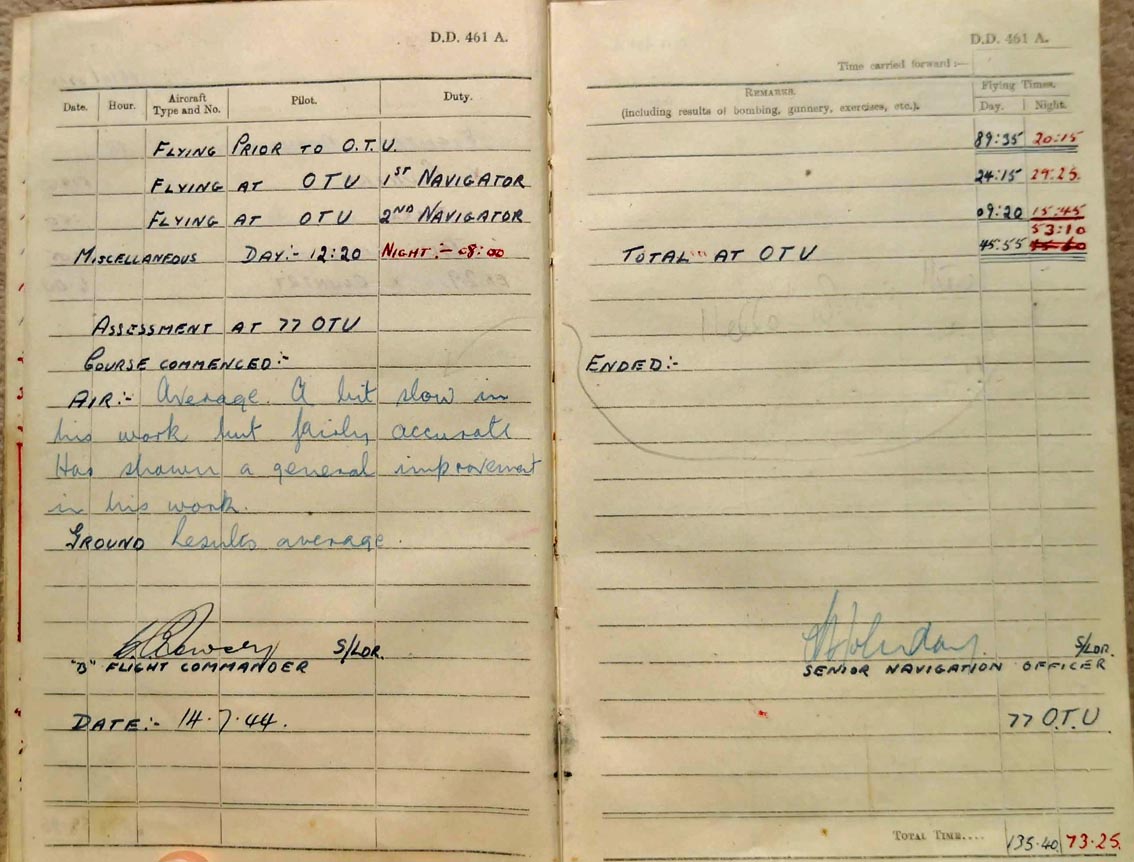 D.D. 461 A.
Date. Hour. Aircraft Type and No. Pilot. Duty.
FLYING PRIOR TO O.T.U.
FLYING AT OTU 1ST NAVIGATOR
FLYING AT OTU 2ND NAVIGATOR
MISCELLANEOUS DAY:- 12:20 NIGHT:- 08:00
ASSESSMENT AT 77 OTU
COURSE COMMENCED:-
AIR:- Average. A bit slow in
his work but fairly accurate
Has shown a general improvement
in his work.
GROUND Results average.
S/LDR.
"B" FLIGHT COMMANDER
DATE:- 14.7.44.
D.D. 461 A.
Time carried forward:—
REMARKS. Flying Times.
(including results of bombing, gunnery, exercises, etc.). Day. Night.
89:35 20:15
24:15 29:25.
09:20 15:45
53:10
TOTAL AT OTU 45.55
Hello
ENDED:-
S/LDR.
SENIOR NAVIGATION OFFICER
77 O.T.U
TOTAL TIME.... 135.40 73.25.